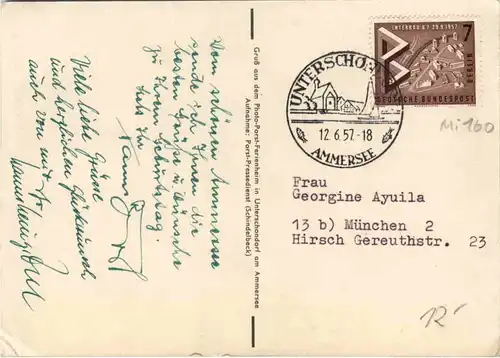 Vom schönen Ammersee
sende ich Ihnen die
besten Grüße u. Wünsche
zu Ihrem Geburtstag.
Stets Ihr
Hanns Porst
Viele liebe Grüße
und herzlichen Glückwunsch
auch von mir
Gruß aus dem Photo-Porst-Ferienheim in Unterschondorf am Ammersee
Aufnahme: Porst-Pressedienst (Schindelbeck)
INTERBAU 6.7.-29.9.1957
7
BERLIN
DEUTSCHE BUNDESPOST
UNTERSCHO
12.6.57.-18
AMMERSEE
Mi 160
Frau
Georgine Ayuila
13 b) München 2
Hirsch Gereuthstr. 23
12,-